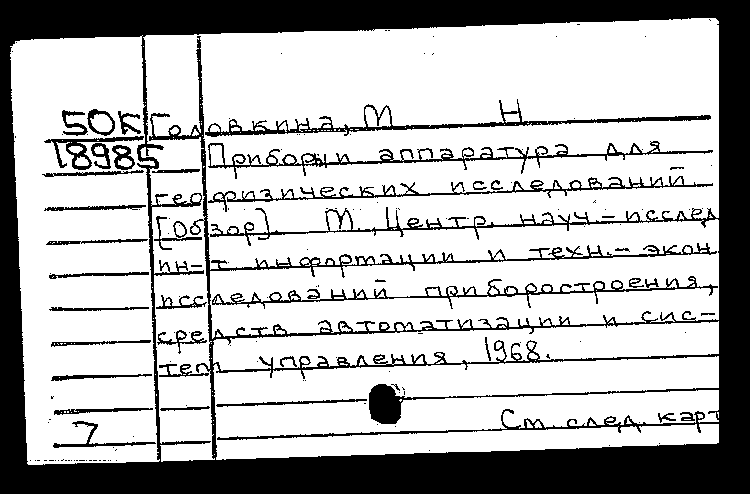 50К Головкина, М Н
18985 Приборы и аппаратура для
геофизических исследований
[Обзор]. М., Центр. науч-исслед
ин-т информации и техн.-экон
исследований приборостроения,
средств автоматизации и сис-
тем управления, 1968.
7 См. след. карт